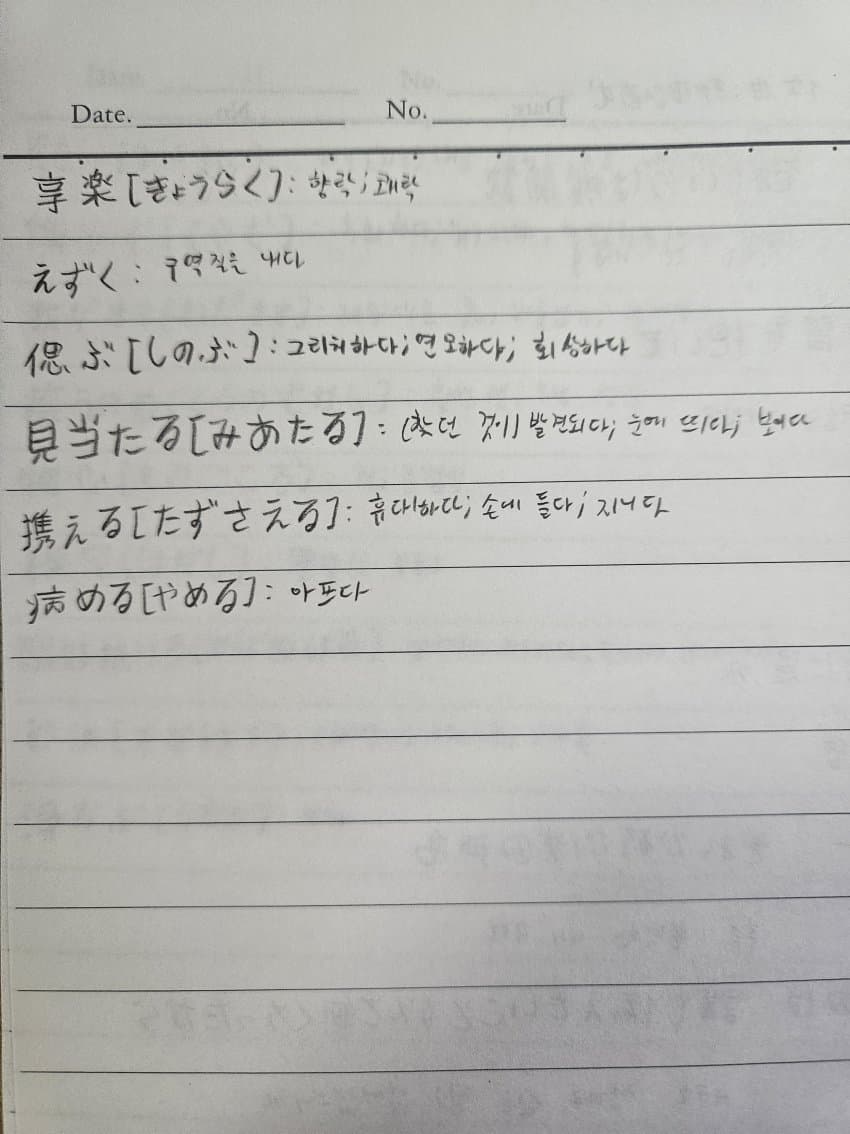 Date. No.
享楽[きょうらく]: 향락; 쾌락
えずく: 구역질을 내다
偲ぶ[しのぶ]: 그리워하다; 연모하다; 회상하다
見当たる[みあたる]: (찾던 것이) 발견되다; 눈에 뜨이다; 보이다
携える[たずさえる]: 휴대하다; 손에 들다; 지니다
病める[やめる]: 아프다